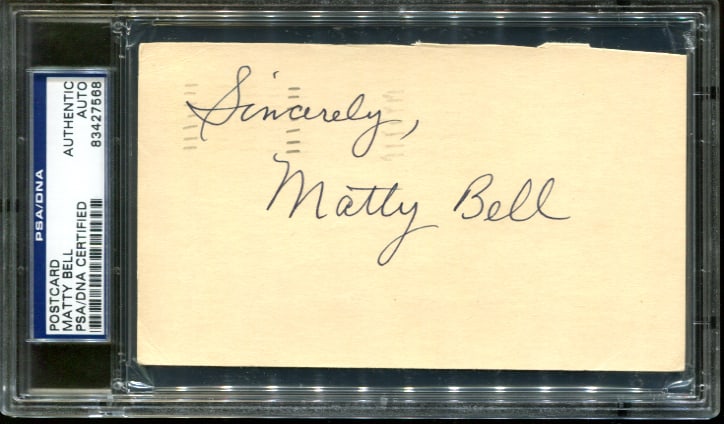 PSA/DNA
POSTCARD
MATTY BELL
PSA/DNA CERTIFIED
AUTHENTIC
AUTO
83427568
Sincerely,
Matty Bell